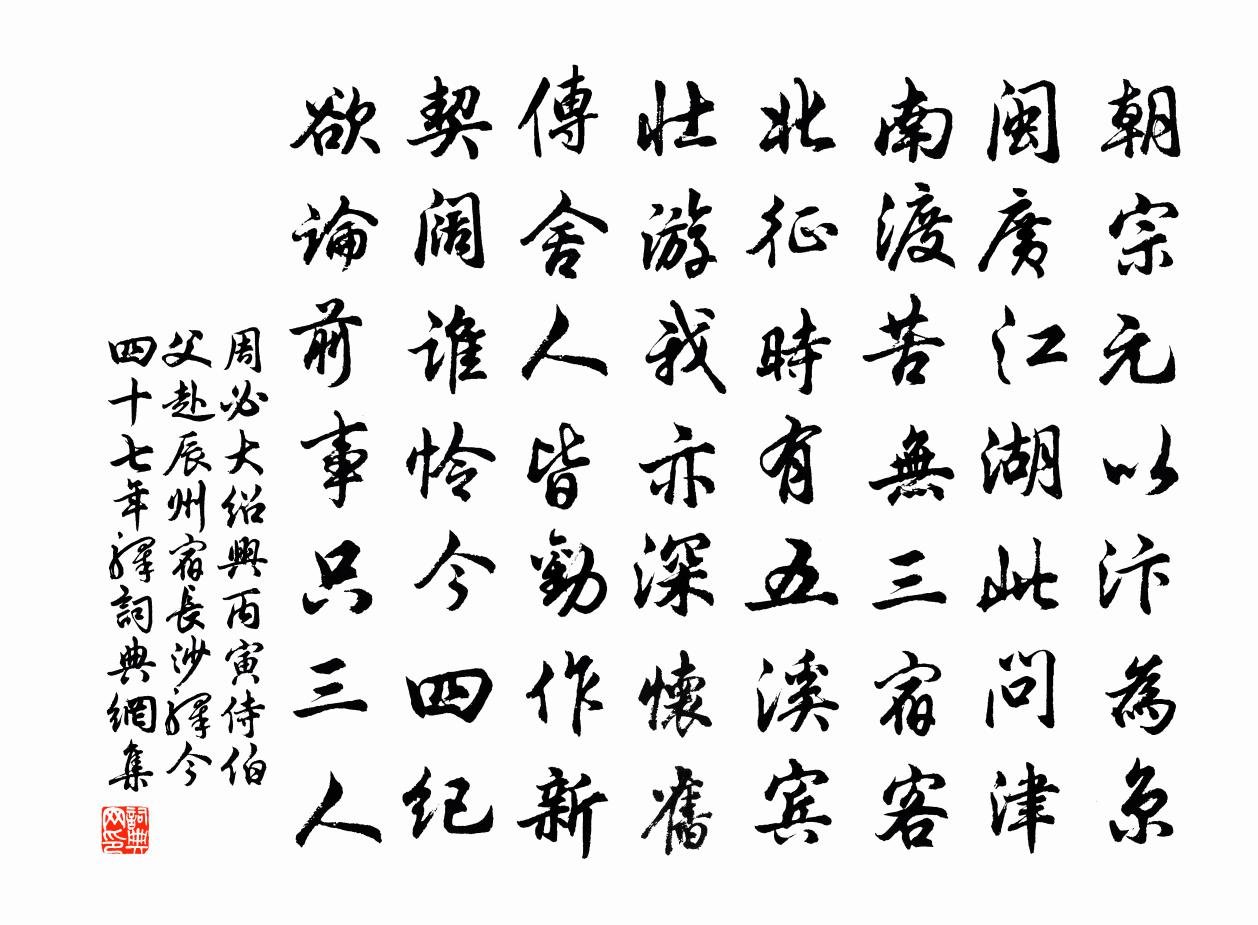 朝宗元以汴為京
閩廣江湖此問津
南渡苦無三宿客
北征時有五溪賓
壯游我亦深懷舊
傳舍人皆勸作新
契闊誰憐今四紀
欲論前事只三人
周必大紹興丙寅侍伯
父赴辰州宿長沙驛今
四十七年驛詞典網集
詞典網印